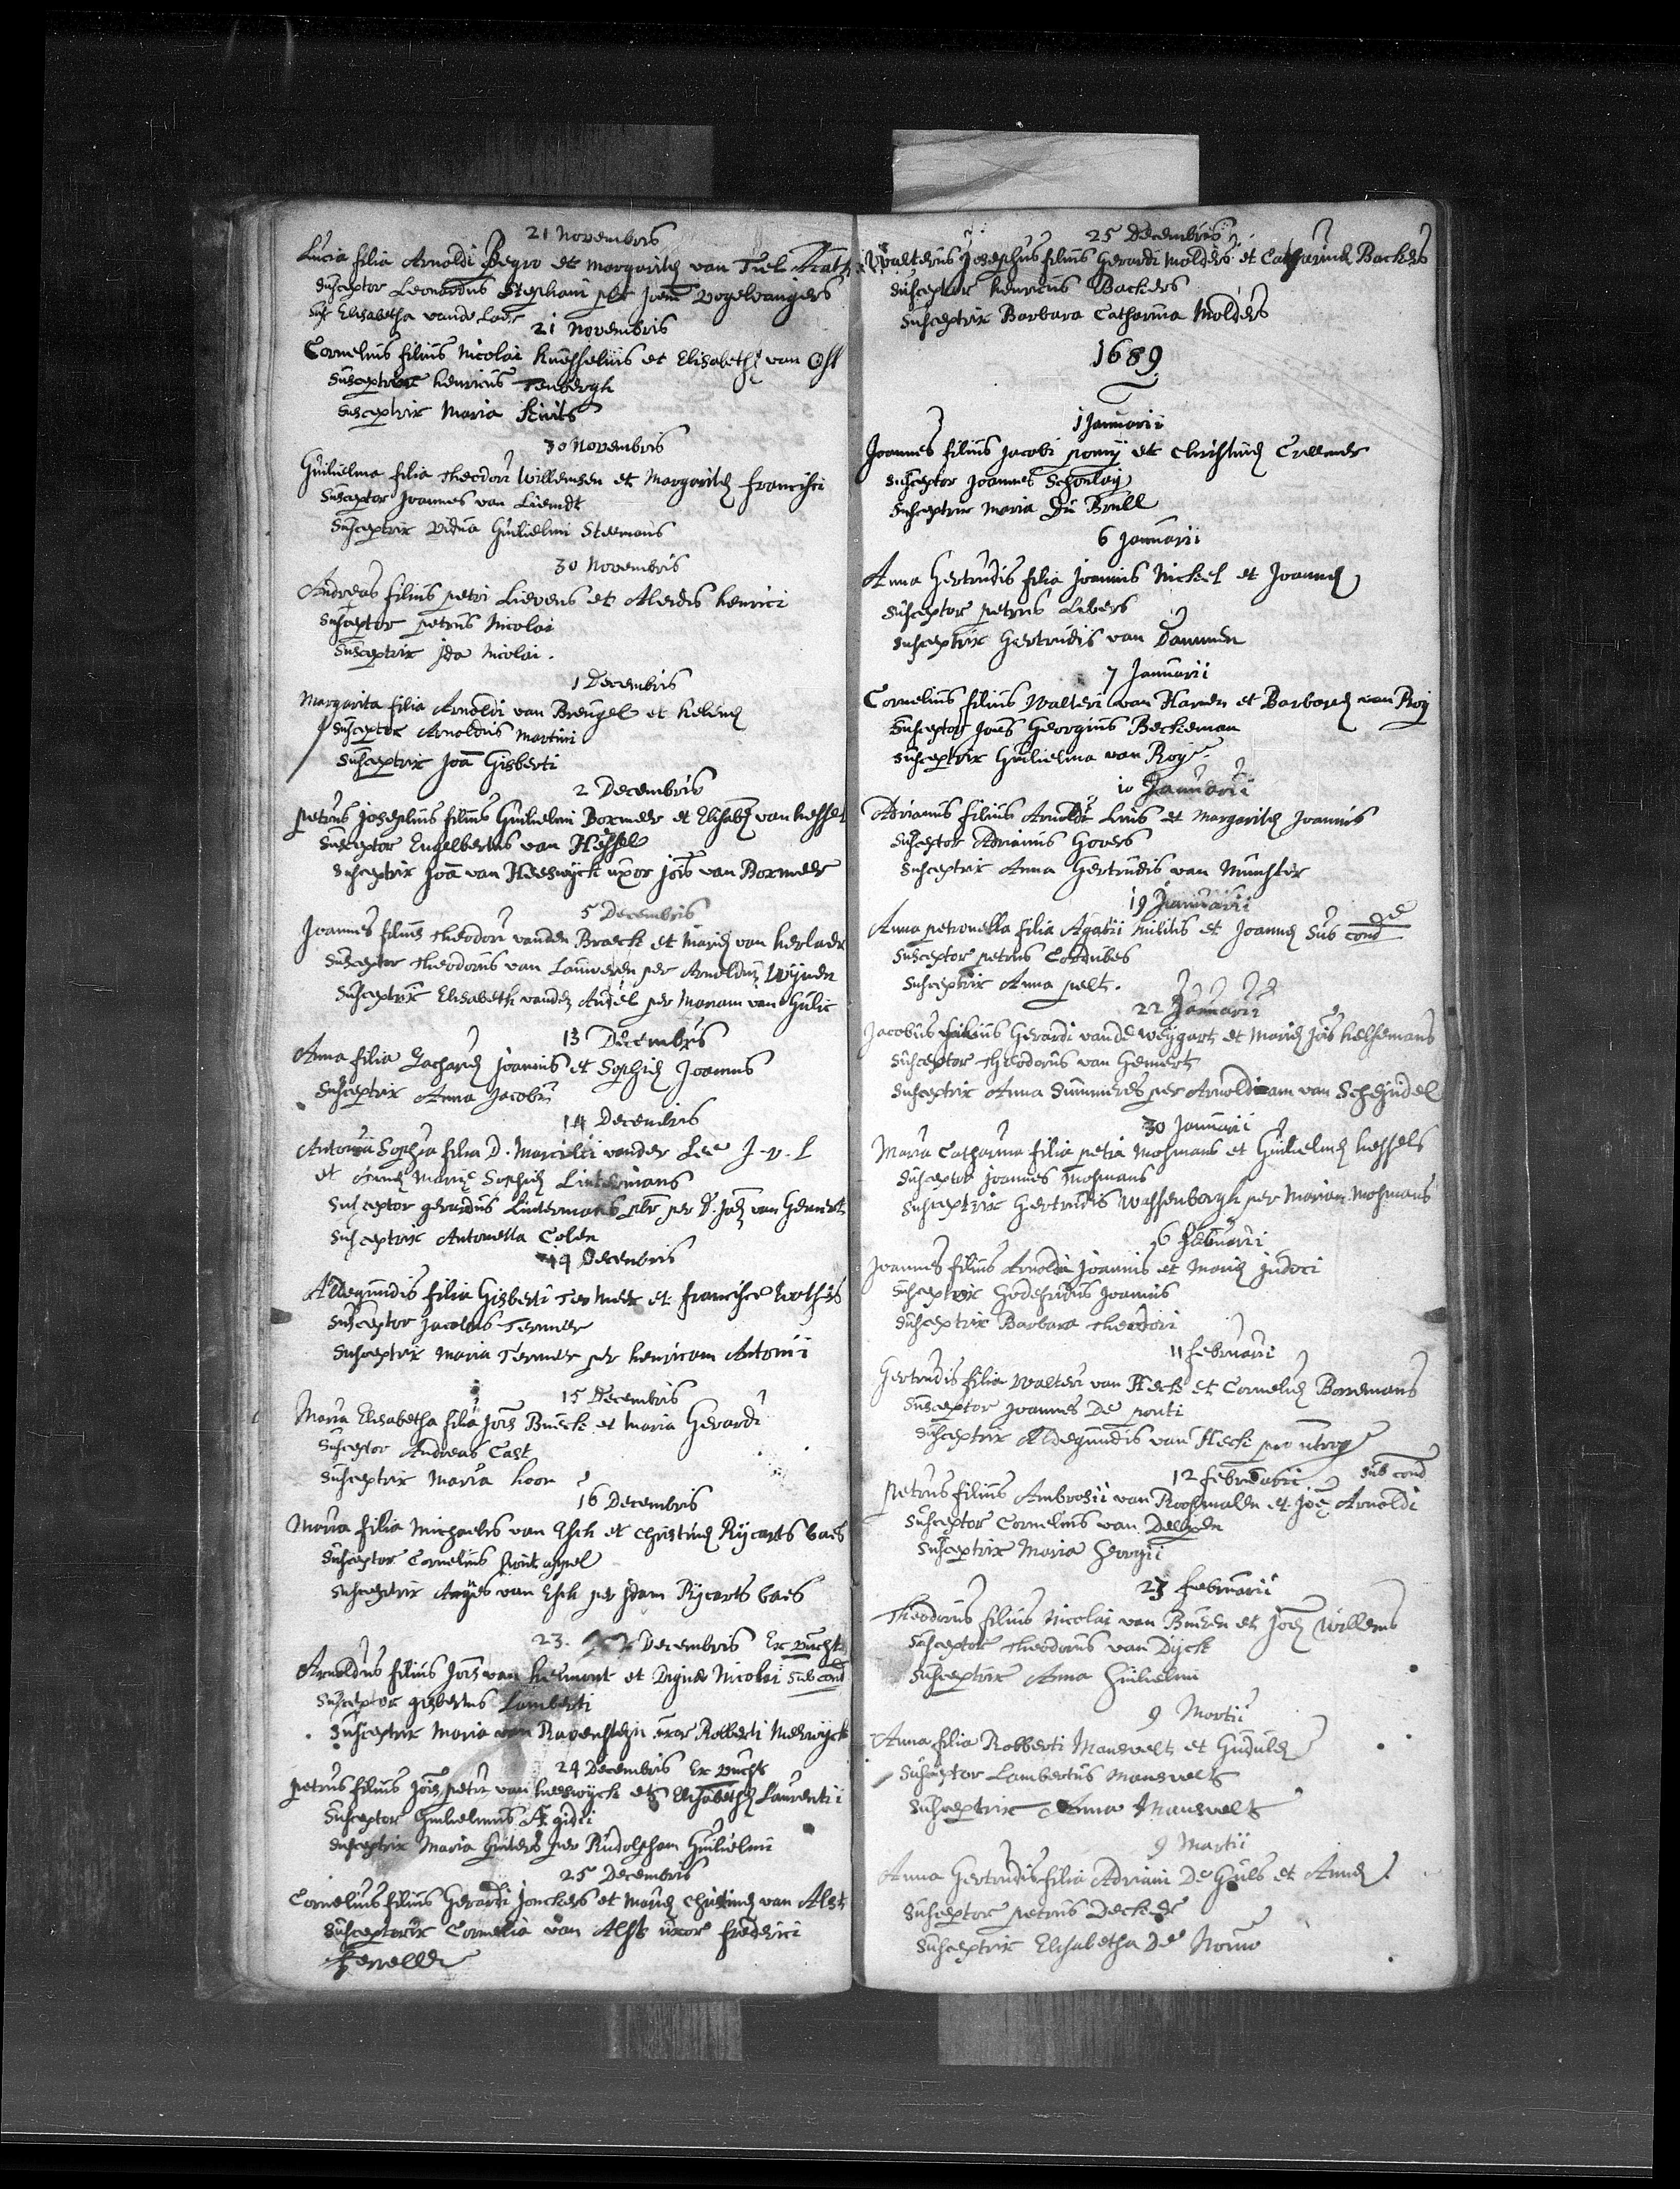 21 Novembris
Lucia filia Arnoldi Begro et Margaritę van Tiel
Susceptor Leonardus Stephani per Joem Vogelvangers
Elisabetha vande Laer
21 Novembris
Cornelius filius Nicolai et Elisabethę van Oss
Susceptor henricus Tenbergh
Susceptrix Maria
30 Novembris
Guilielma filia theodori Willemsen et Margaritę francisci
Susceptor Joannes van Liemdt
Susceptrix vidua Guilielmi Steemans
30 Novembris
Andreas filius petri Lievens et Aleidis henrici
Susceptor petrus Nicolai
Susceptrix Ida Nicolai.
1 Decembris
Margarita filia Arnoldi van Breugel et helenę
Susceptor Arnoldus Martini
Susceptrix Joā Gisberti
2 Decembris
petrus Josephus filius Guilielmi Bormeer et Elisabę van hessel
Susceptor Engelbertus van Hessel
Susceptrix Joā van Heeswyck uxor Jois van Bormeer
5 Decembris
Joannes filius theodori vanden Braeck et Marię van herlaer
Susceptor theodorus van Lauweren per Arnoldum Wijnen
Susceptrix Elisabeth vanden Audel per Mariam van Gulic
13 Decembris
Anna filia Zacharię Joannis et Sophię Joannis
Susceptrix Anna Jacobi
14 Decembris
Antonia Sophia filia D. Marcelli vander Lee J. v. L
et Marię Sophię Lintermans
Susceptor gerardus Lintermans per D. Joēm van Gemert
Susceptrix Antonella Colen
14 Decembris
Aldegundis filia Gisberti Termeer et
Susceptor Jacobus Termeer
Susceptrix Maria Termeer per henricam Antonii
15 Decembris
Maria Elisabetha filia Jois Buieck et Maria Gerardi
Susceptor Andreas Cast
Susceptrix Maria hoon
16 Decembris
Maria filia Michaelis van Esch et Christinę Rijcarts baes
Susceptor Cornelius pontappel
Susceptrix van Esch per Idam Rijcarts baes
23. Decembris Ex vucht
Arnoldus filius Jois van helmont et Dignæ Nicolai sub cond
Susceptor gisbertus Lamberti
Susceptrix Maria van Ravensteyn uxor Robberti Meerwyck
24 Decembris Ex vucht
petrus filius Jois petri van heeswyck et Elisabethę Laurentii
Susceptor Guilielmus Ægidii
Susceptrix Maria per Rudolpham Guilielmi
25 Decembris
Cornelius filius Gerardi Jonckers et Marię Christinę van Alst
Susceptrix Cornelia van Alst uxor frederici
25 Decembris
Walterus Josephus filius Gerardi Molders et Catharinę Backers
Susceptor henricus Backers
Susceptrix Barbara Catharina Molders
1689
1 Januarii
Joannes filius Jacobi et Christinę
Susceptor Joannes Schonlay
Susceptrix Maria Du Brull
6 Januarii
Anna Gertrudis filia Joannis Nickel et Joannę
Susceptor petrus Libers
Susceptrix Gertrudis van Dammen
7 Januarii
Cornelius filius Walteri van Haren et Barbarę van Roij
Susceptor Joēs Georgius Beckeman
Susceptrix Guilielma van Roij.
10 Januarii
Adrianus filius Arnoldi et Margaritę Joannis
Susceptor Adrianus Govers
Susceptrix Anna Gertrudis van Munster
19 Januarii
Anna petronella filia et Joannę sub cond
Susceptor petrus
Susceptrix Anna pelt.
22 Januarii
Jacobus filius Gerardi vande Weygart et Marię Jois helsemans
Susceptor theodorus van Gemert
Susceptrix Anna Summeres per Arnoldam van Schyndel
30 Januarii
Maria Catharina filia petri Mosmans et Guilielmę hessels
Susceptor Joannes Mosmans
Susceptrix Gertrudis Wassenborgh per Mariam Mosmans
6 Februarii
Joannes filius Arnoldi Joannis et Marię Judoci
Susceptor Godefridus Joannis
Susceptrix Barbara theodori
11 februarii
Gertrudis filia Walteri van Heck et Cornelię Borremans
Susceptor Joannes De ponti
Susceptrix Aldegundis van Heck pro utroque
12 februarii sub cond
petrus filius Ambrosii van Roosmalen et Joē Arnoldi
Susceptor Cornelius van
Susceptrix Maria Georgii
23 februarii
Theodorus filius Nicolai van Beusen et Joę Willems
Susceptor theodorus van Dijck
Susceptrix Anna Guilielmi
9 Martii
Anna filia Robberti Mansvelt et Gudulę
Susceptor Lambertus Mansvelt
Susceptrix Anna Mansvelt
9 Martii
Anna Gertrudis filia Adriani De Guls et Annę
Susceptor petrus Decker
Susceptrix Elisabetha De